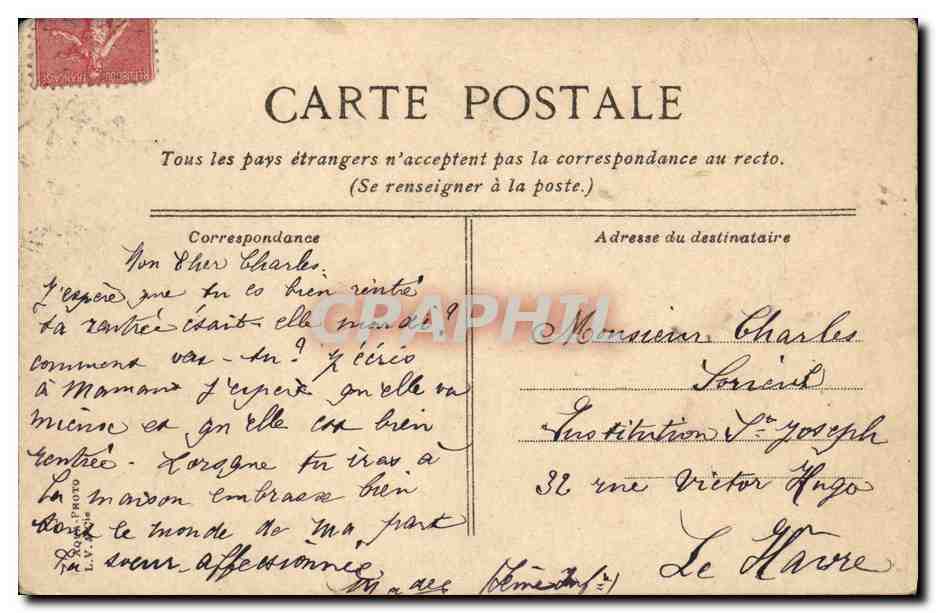 REPUBLIQUE FRANÇAISE
CARTE POSTALE
Tous les pays étrangers n'acceptent pas la correspondance au recto.
(Se renseigner à la poste.)
Correspondance
Mon Cher Charles
J'espère que tu es bien rentré
ta rentrée était-elle mardi?
comment vas-tu? J'écris
à Maman J'espère qu'elle va
mieux et qu'elle est bien
rentrée. Lorsque tu iras à
la maison embrasse bien
tout le monde de ma part
Ta soeur affectionnée
AQUA-PHOTO
L.V.
Adresse du destinataire
Monsieur Charles
Institution St Joseph
32 rue Victor Hugo
Le Hâvre
(Seine Infre)
CPAPHIL